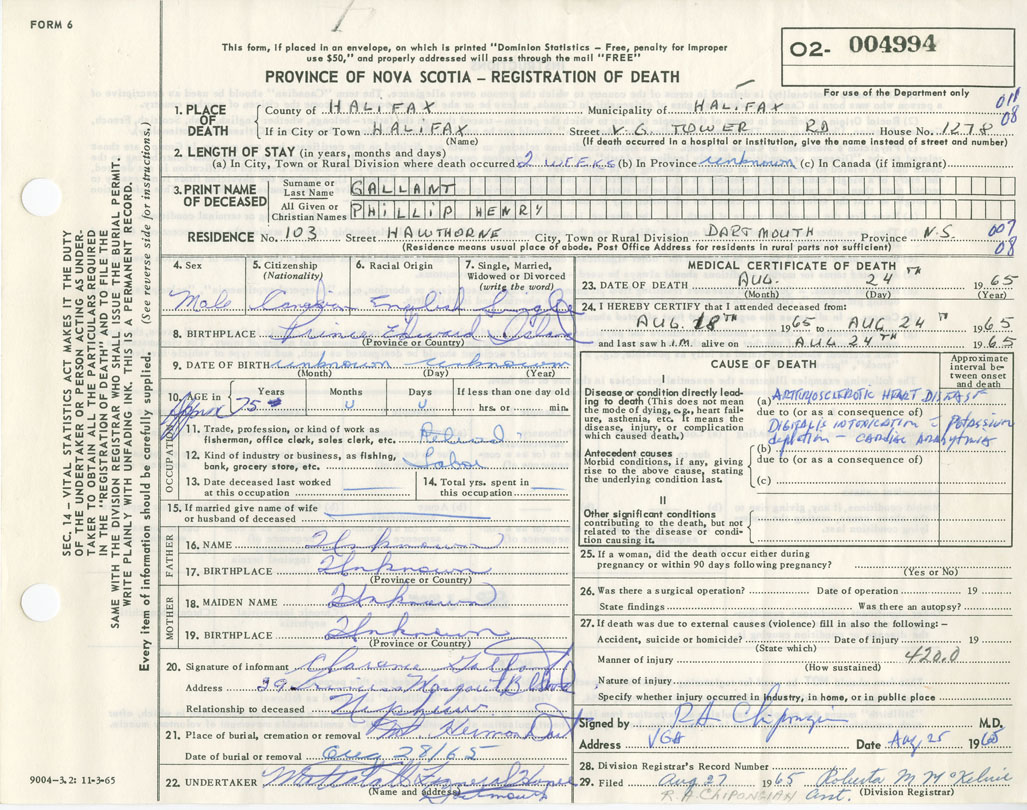 FORM 6
This form, if placed in an envelope, on which is printed "Dominion Statistics – Free, penalty for improper
use $50," and properly addressed will pass through the mail "FREE"
PROVINCE OF NOVA SCOTIA – REGISTRATION OF DEATH
02- 004994
For use of the Department only
1. PLACE OF DEATH
County of HALIFAX Municipality of HALIFAX 08
If in City or Town HALIFAX Street V.G. TOWER RD House No. 1278
(Name) (If death occurred in a hospital or institution, give the name instead of street and number)
2. LENGTH OF STAY (in years, months and days)
(a) In City, Town or Rural Division where death occurred 2 WEEKS (b) In Province unknown (c) In Canada (if immigrant)
3. PRINT NAME OF DECEASED
Surname or Last Name GALLANT
All Given or Christian Names PHILLIP HENRY
RESIDENCE No. 103 Street HAWTHORNE City, Town or Rural Division DARTMOUTH Province N.S. 007 08
(Residence means usual place of abode. Post Office Address for residents in rural parts not sufficient)
SEC. 14 – VITAL STATISTICS ACT MAKES IT THE DUTY
OF THE UNDERTAKER OR PERSON ACTING AS UNDER-
TAKER TO OBTAIN ALL THE PARTICULARS REQUIRED
IN THE "REGISTRATION OF DEATH" AND TO FILE THE
SAME WITH THE DIVISION REGISTRAR WHO SHALL ISSUE THE BURIAL PERMIT.
WRITE PLAINLY WITH UNFADING INK. THIS IS A PERMANENT RECORD.
Every item of information should be carefully supplied. (See reverse side for instructions.)
4. Sex 5. Citizenship (Nationality) 6. Racial Origin 7. Single, Married, Widowed or Divorced (write the word)
Male Canadian English Single
8. BIRTHPLACE Prince Edward Island
(Province or Country)
9. DATE OF BIRTH unknown unknown
(Month) (Day) (Year)
10. AGE in Years Months Days If less than one day old
Approx 75 U U hrs. or min.
OCCUPATION
11. Trade, profession, or kind of work as
fisherman, office clerk, sales clerk, etc. Retired
12. Kind of industry or business, as fishing,
bank, grocery store, etc. Labor
13. Date deceased last worked
at this occupation
14. Total yrs. spent in
this occupation
15. If married give name of wife
or husband of deceased
FATHER
16. NAME Unknown
17. BIRTHPLACE Unknown
(Province or Country)
MOTHER
18. MAIDEN NAME Unknown
19. BIRTHPLACE Unknown
(Province or Country)
20. Signature of informant Clarence
Address 29
Relationship to deceased Nephew
21. Place of burial, cremation or removal Mt Hermon Dart
Date of burial or removal Aug 28/65
22. UNDERTAKER Mattatall Funeral Home
(Name and address) Dartmouth
9004-3.2: 11-3-65
MEDICAL CERTIFICATE OF DEATH
23. DATE OF DEATH AUG. 24TH 1965
(Month) (Day) (Year)
24. I HEREBY CERTIFY that I attended deceased from:
AUG. 18TH 1965 to AUG 24TH 1965
and last saw h.I.M. alive on AUG 24TH 1965
CAUSE OF DEATH
Approximate interval between onset and death
I
Disease or condition directly lead-
ing to death (This does not mean
the mode of dying, e.g., heart fail-
ure, asthenia, etc. It means the
disease, injury, or complication
which caused death.)
(a) ARTHROSCLEROTIC HEART DISEASE
due to (or as a consequence of)
DIGITALIS INTOXICATION – POTASSIUM
(b) depletion – CARDIAC ARRHYTHMIAS
due to (or as a consequence of)
(c)
Antecedent causes
Morbid conditions, if any, giving
rise to the above cause, stating
the underlying condition last.
II
Other significant conditions
contributing to the death, but not
related to the disease or condi-
tion causing it.
25. If a woman, did the death occur either during
pregnancy or within 90 days following pregnancy?
(Yes or No)
26. Was there a surgical operation? Date of operation 19
State findings Was there an autopsy?
27. If death was due to external causes (violence) fill in also the following: –
Accident, suicide or homicide? Date of injury 19
(State which)
Manner of injury 420.0
(How sustained)
Nature of injury
Specify whether injury occurred in industry, in home, or in public place
Signed by R A Chiponzian M.D.
Address VGH Date Aug 25 1965
28. Division Registrar's Record Number
29. Filed Aug 27 1965 Roberta M. McKelvie
R.A CHIPONZIAN Asst. (Division Registrar)